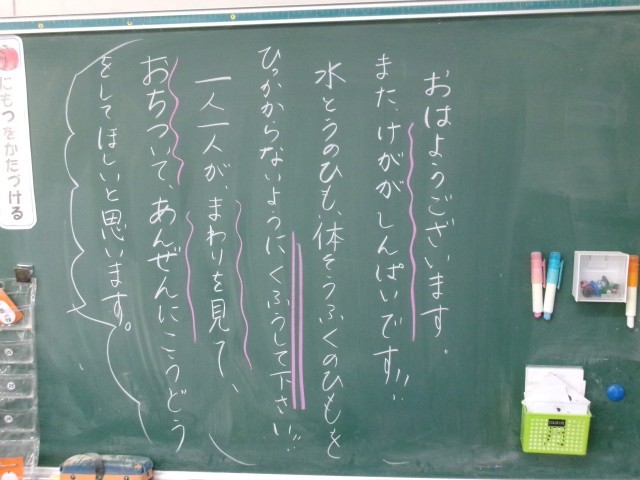 おはようございます。
また、けががしんぱいです!!
水とうのひも、体そうふくのひもを
ひっかからないようにくふうして下さい!!
一人一人が、まわりを見て、
おちついて、あんぜんにこうどう
をしてほしいと思います。
にもつをかたづける